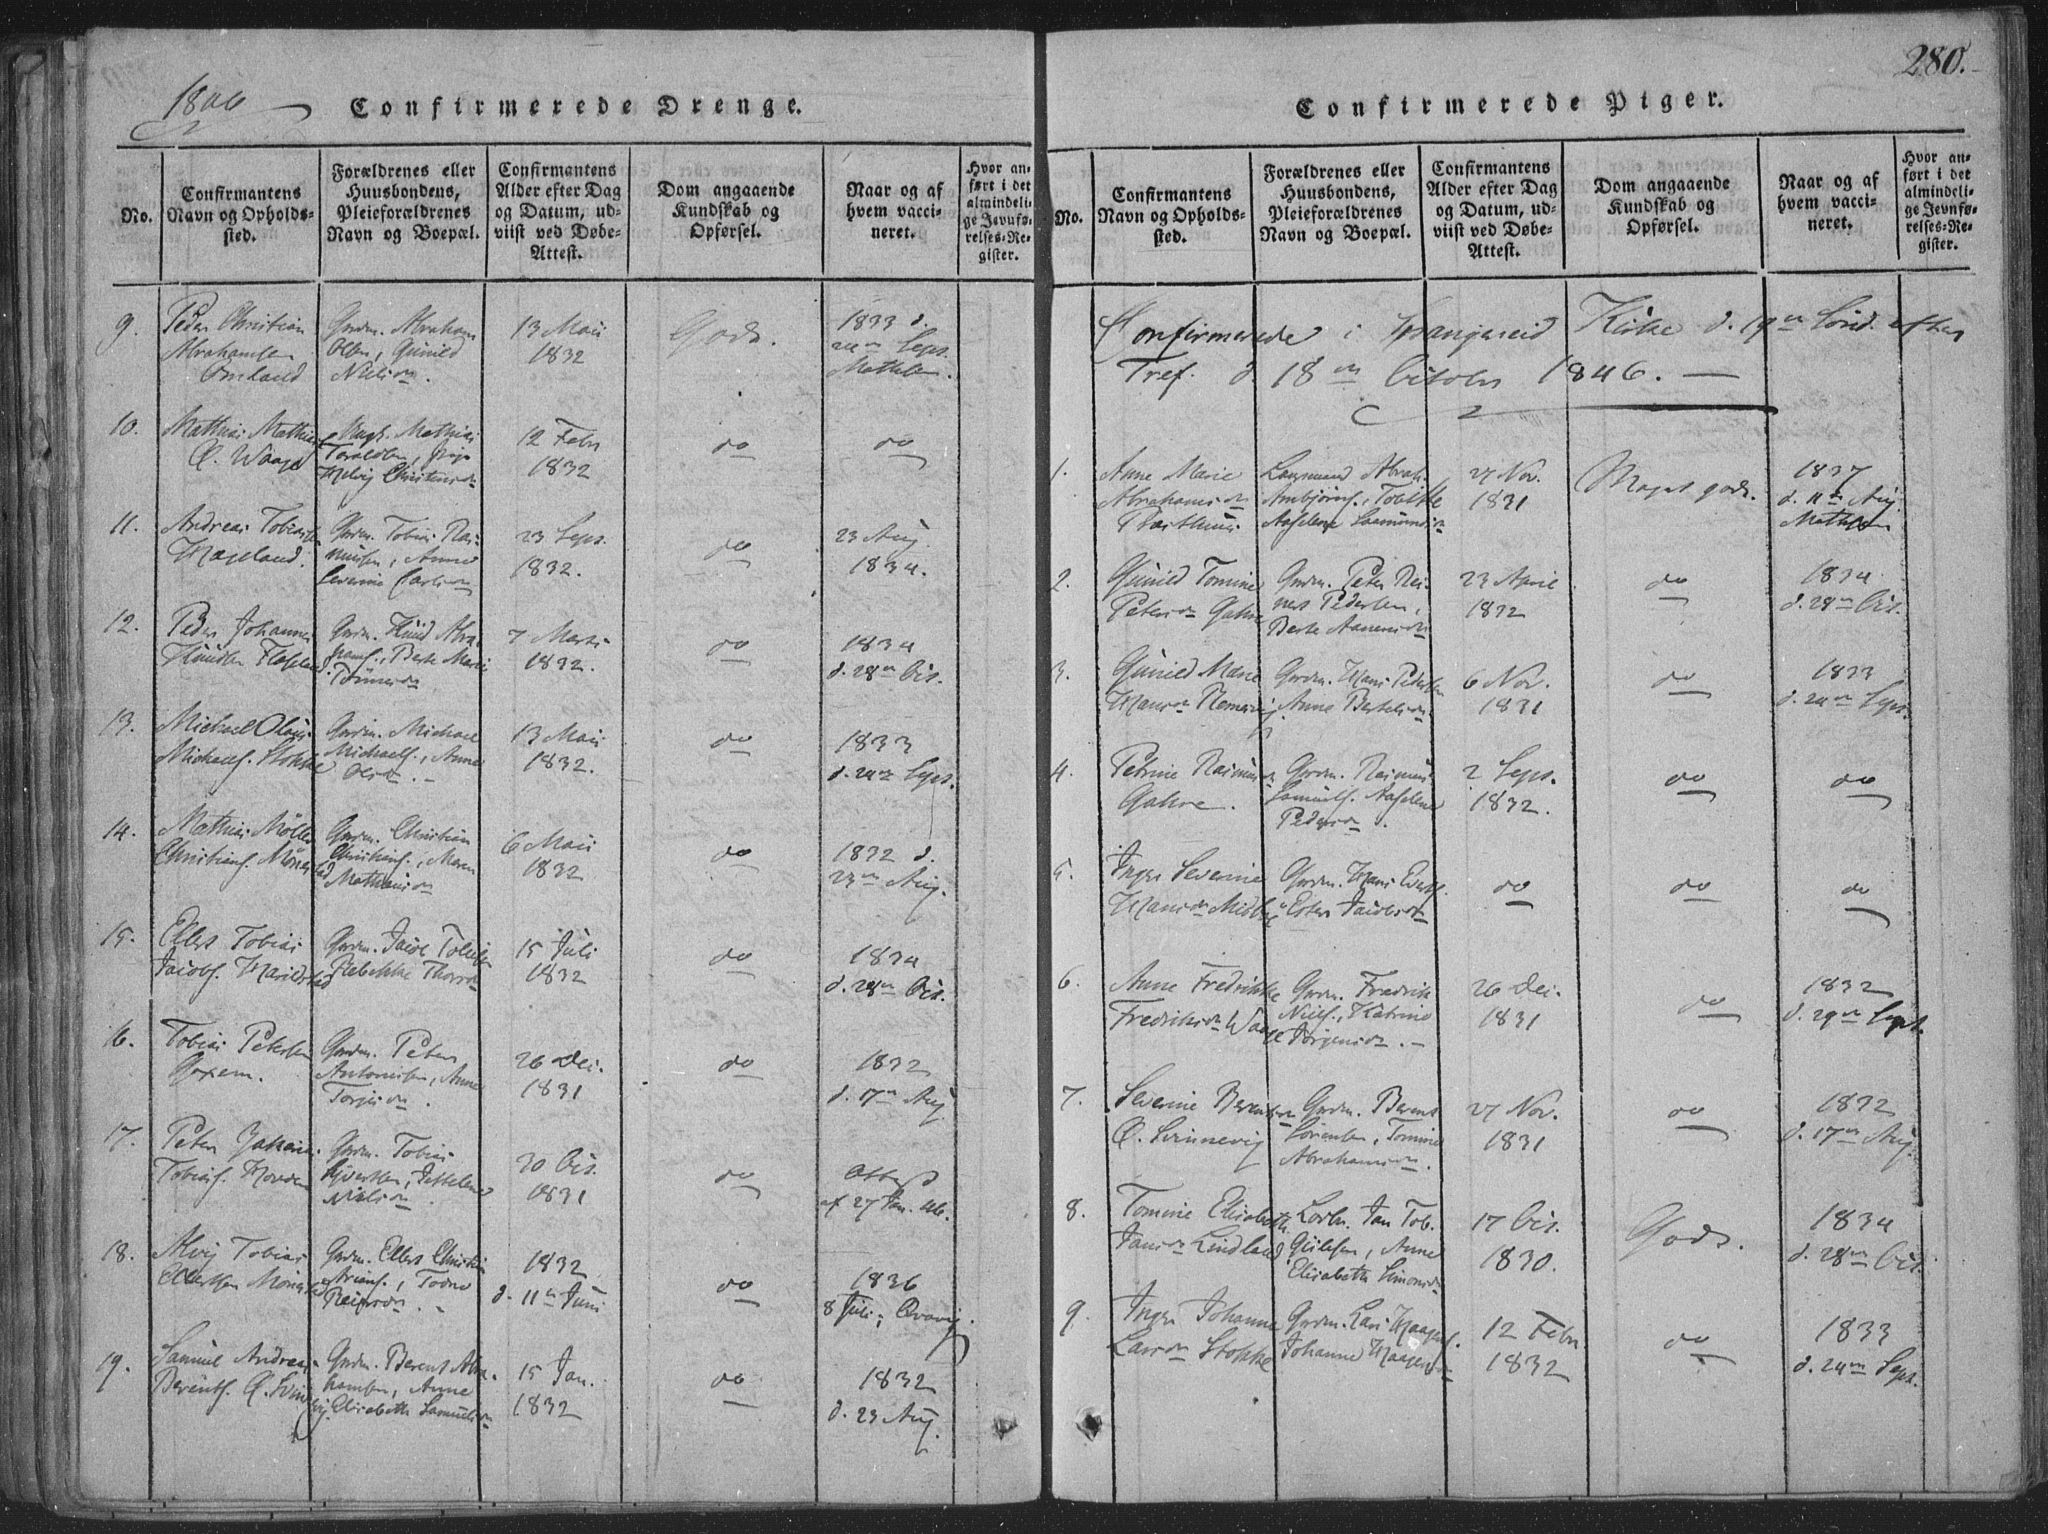 280.
1846
Confirmerede Drenge.
No.
Confirmantens
Navn og Opholds-
sted.
Forældrenes eller
Huusbondens,
Pleieforældrenes
Navn og Boepæl.
Confirmantens
Alder efter Dag
og Datum, ud-
viist ved Døbe-
Attest.
Dom angaaende
Kundskab og
Opførsel.
Naar og af
hvem vacci-
neret.
Hvor an-
ført i det
almindeli-
ge Jevnfø-
relses-Re-
gister.
9.
Peder Christian
Abrahamsen
Omland
Grdm. Abraham
Olsen, Gunild
Nielsdn.
13 Maii
1832
Godt.
1833 d.
24n Sept.
Mathsen.
10.
Mathias Mathias
Waage
Mathias
Taraldsen,
Helvig Christensdn
12 Febr
1832
do
do
11.
Andreas Tobiassen
Hageland.
Grdm. Tobias Ras-
mussen, Anne
Severine Carlsdn
23 Sept.
1832.
do
23 Aug.
1834.
12.
Peder Johannes
Knudsen
Grdm. Knud Abra-
hams., Berte Marie
Tønnesdn
7 Marts
1832.
do
1834
d. 28n Oct.
13.
Michael Olaus
Michaels. Stokke
Grdm. Michael
Michaels., Anne
Olsdn. -
13 Maii
1832.
do
1833
d. 24n Sept.
14.
Mathias Møller
Christians.
Grdm. Christian
Christians., Maren
Mathiasdn
6 Maii
1832
do
1832 d.
23n Aug.
15.
Ellert Tobias
Jacobs.
Grdm. Jacob Tollefsen
Rebekke Thorsdn
15 Juli
1832
do
1834
d. 28n Oct.
16.
Tobias Petersen
Goxem.
Grdm. Peter
Antonisen, Anne
Torjusdn.
26 Dec.
1831
do
1832
d. 17n Aug.
17.
Peter
Tobias.
Grdm. Tobias
Syvertsen,
Nielsdn.
30 Oct.
1831
do
Attest
af 27 Jan. 46.
18.
Alvig Tobias
Ellertsen
Grdm. Ellert Christian
Arians., Tovne
Reiersdn. -
1832
d. 11n Juni
do
1836
8 Juli,
19.
Samuel Andreas
Berents.
Grdm. Berent Abra-
hamsen, Anne
Elisabeth Samuelsdn
15 Jan.
1832
do
1832
d. 23 Aug.
Confirmerede Piger.
No.
Confirmantens
Navn og Opholds-
sted.
Forældrenes eller
Huusbondens,
Pleieforældrenes
Navn og Boepæl.
Confirmantens
Alder efter Dag
og Datum, ud-
viist ved Døbe-
Attest.
Dom angaaende
Kundskab og
Opførsel.
Naar og af
hvem vacci-
neret.
Hvor an-
ført i det
almindeli-
ge Jevnfø-
relses-Re-
gister.
Confirmerede i Spangereid Kirke d. 19n Sønd. efter
Tref. d. 18n October 1846. -
1.
Anne Marie
Abrahamsdn
Lausmand Abrah.
Ambjørns., Tobikke
Aaselene Saamundsdn
27 Nov.
1831
Meget godt.
1837
d. 11n Aug.
Mathsen
2.
Gunild Tomine
Petersdn Gahre
Grdm. Peter Rei-
nert Pedersen,
Berte Aanensdn
23 April
1832
do
1834
d. 28n Oct.
3.
Gunild Marie
Hansdn
Grdm. Hans Pedersen
Anne Bertelsdn
6 Nov.
1831
do
1833
d. 24n Sept.
4.
Petrine Rasmusdn
Gahre.
Grdm. Rasmus
Samuels. Aaselene
Pedersdn.
2 Sept.
1832.
do
do
5.
Inger Severine
Hansdn Midbøe
Grdm. Hans Everts.
Ester Jacobsdn
do
do
do
6.
Anne Fredrikke
Fredriksdn Waage
Grdm. Fredrik
Niels., Katrine
Jørgensdn. -
26 Dec.
1831
do
1832
d. 29n Sept.
7.
Severine Berentsdn
Grdm. Berent
Sørensen, Tomine
Abrahamsdn.
27 Nov.
1831
do
1832
d. 17n Aug.
8.
Tomine Elisabeth
Jansdn Lindland
Jan Tob.
Anne
Elisabeth Simonsdn
17 Oct.
1830.
Godt.
1834
d. 28n Oct.
9.
Inger Johanne
Larsdn Stokke
Grdm. Lars Haagens.
Johanne Haagensdn
12 Febr
1832
do
1833
d. 24n Sept.